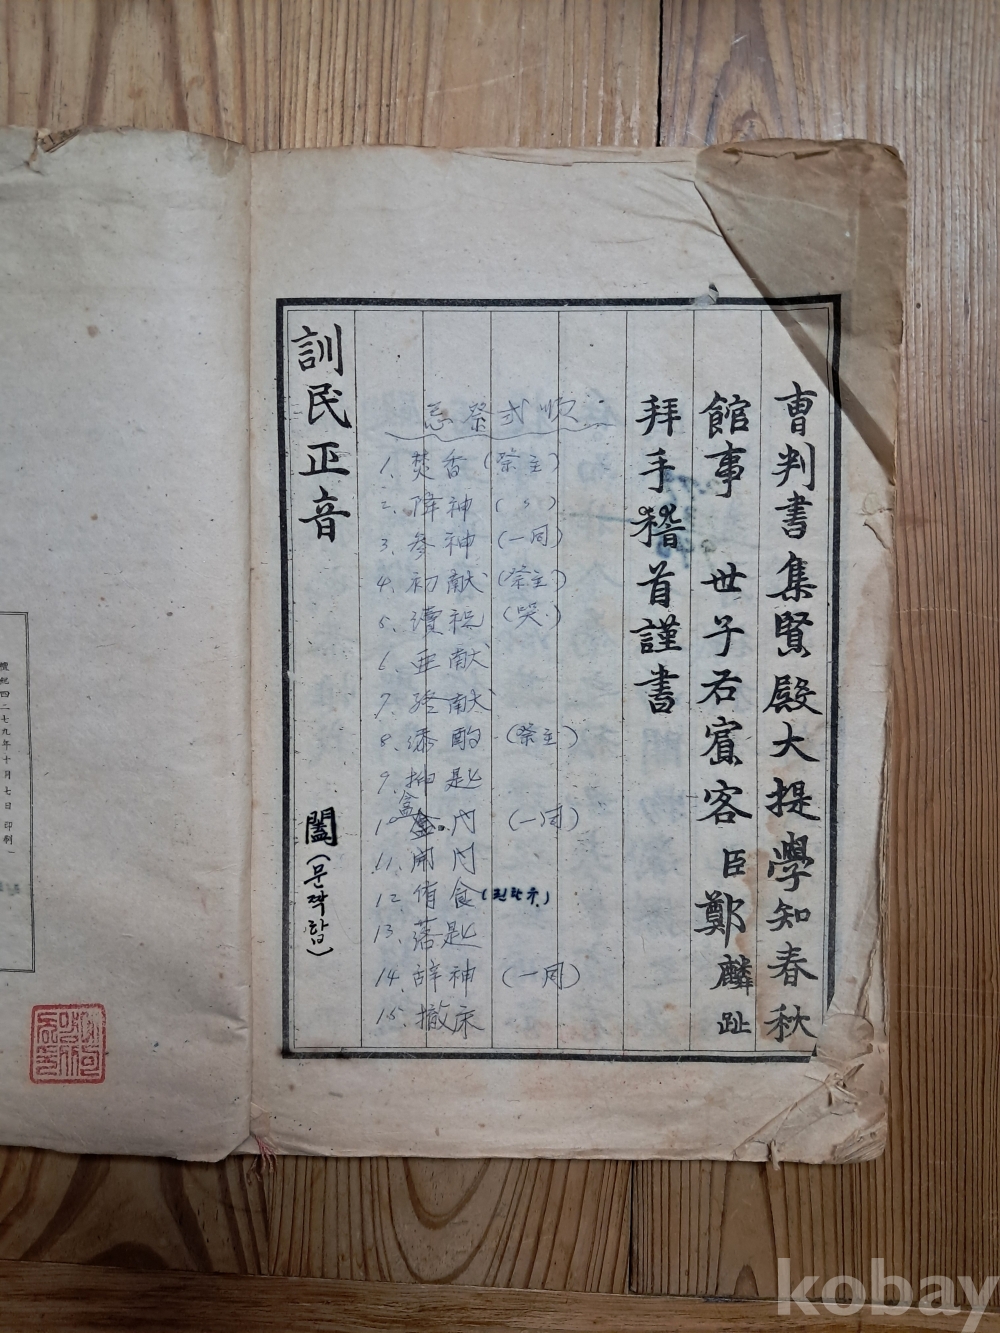 曺判書集賢殿大提學知春秋
館事 世子右賓客 臣鄭麟趾
拜手稽首謹書
忌祭式順
1. 焚香 (祭主)
2. 降神 (〃)
3. 參神 (一同)
4. 初献 (祭主)
5. 讀祝 (哭)
6. 亜献
7. 終献
8. 添酌 (祭主)
9. 揷匙
10. 闔門 (一同)
11. 開門
12. 侑食
13. 落匙
14. 辞神 (一同)
15. 撤床
訓民正音
闔 (문짝합)
檀紀四二七九年十月七日 印刷
kobay